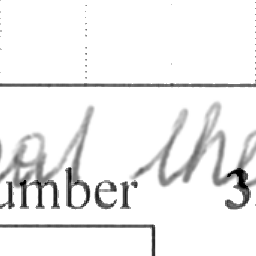 eal the
umber 3.